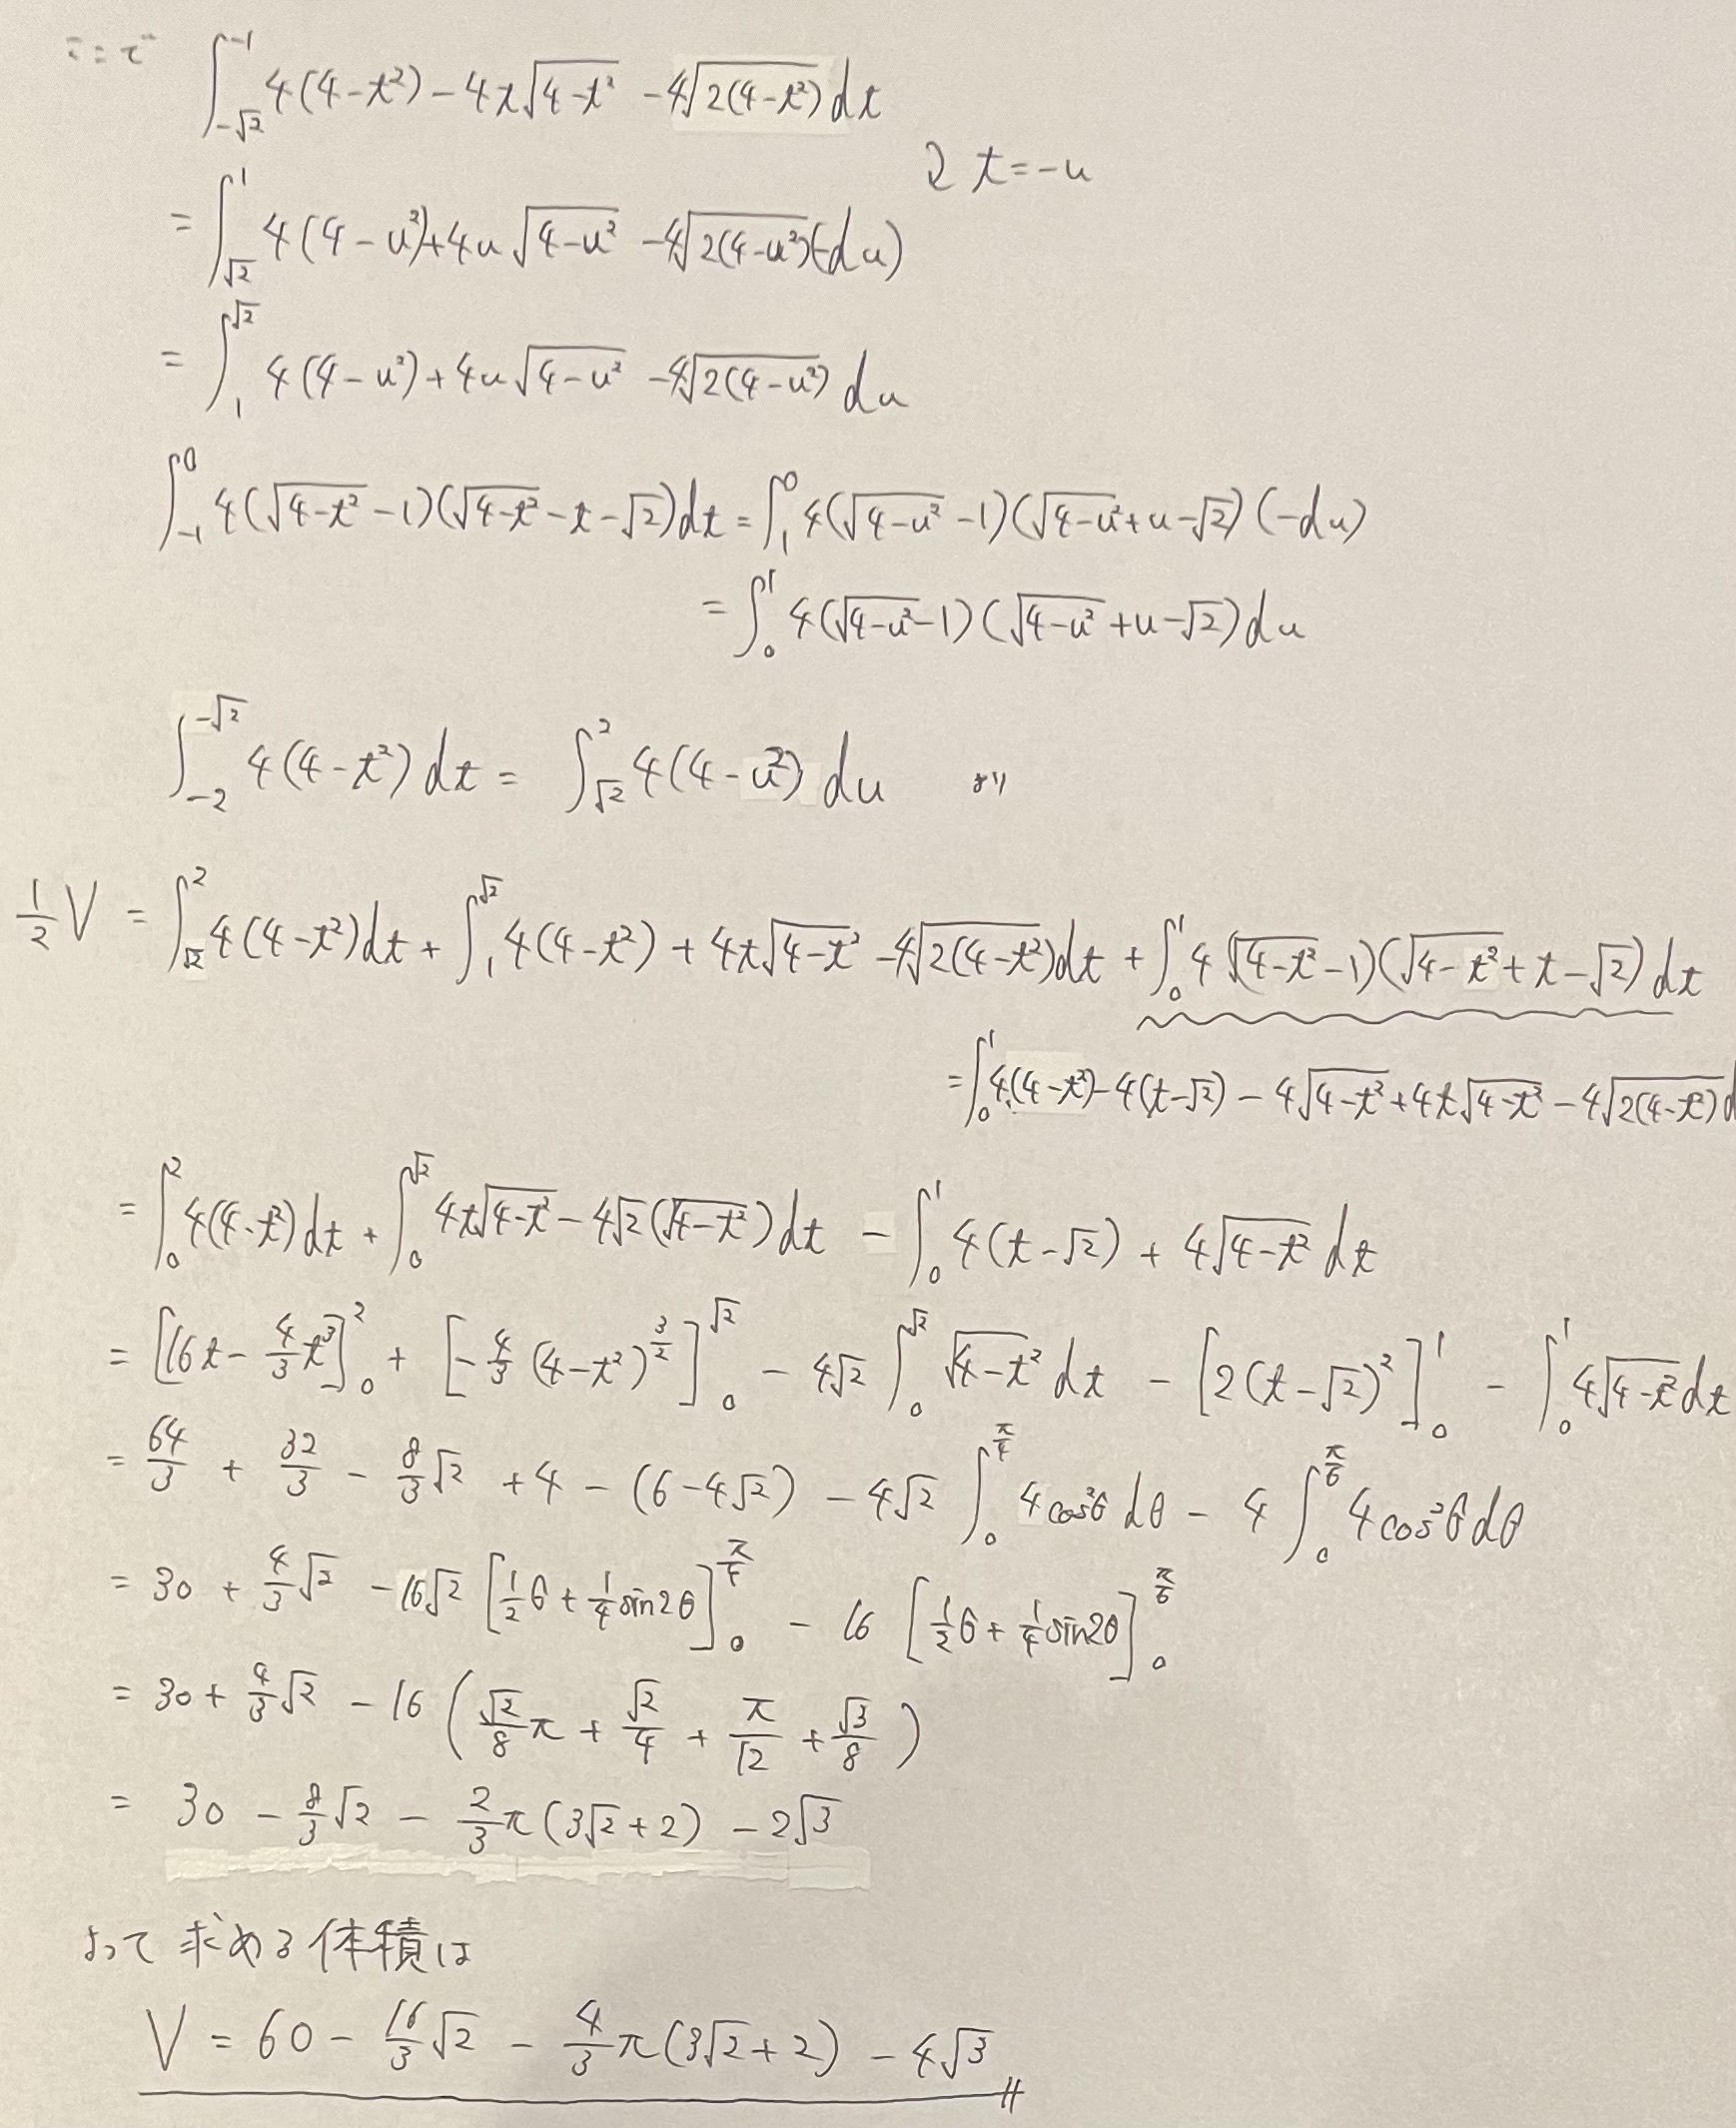 ここで ∫_{-√2}^{-1} 4(4-t²) - 4t√(4-t²) - 4√(2(4-t²)) dt
t=-u
= ∫_{√2}^{1} 4(4-u²)+4u√(4-u²) - 4√(2(4-u²)) (-du)
= ∫_{1}^{√2} 4(4-u²)+4u√(4-u²) - 4√(2(4-u²)) du
∫_{-1}^{0} 4(√(4-t²) -1)(√(4-t²) -t-√2)dt = ∫_{1}^{0} 4(√(4-u²) -1)(√(4-u²)+u-√2)(-du)
= ∫_{0}^{1} 4(√(4-u²)-1)(√(4-u²)+u-√2)du
∫_{-2}^{-√2} 4(4-t²)dt = ∫_{√2}^{2} 4(4-u²)du より
1/2 V = ∫_{√2}^{2} 4(4-t²)dt + ∫_{1}^{√2} 4(4-t²) + 4t√(4-t²) - 4√(2(4-t²))dt + ∫_{0}^{1} 4(√(4-t²)-1)(√(4-t²)+t-√2)dt
= ∫_{0}^{1} 4(4-t²)-4(t-√2) - 4√(4-t²)+4t√(4-t²) - 4√(2(4-t²))d
= ∫_{0}^{2} 4(4-t²)dt + ∫_{0}^{√2} 4t√(4-t²) - 4√2(√(4-t²))dt - ∫_{0}^{1} 4(t-√2) + 4√(4-t²) dt
= [16t - 4/3 t³]_{0}^{2} + [-4/3 (4-t²)^{3/2}]_{0}^{√2} - 4√2 ∫_{0}^{√2} √(4-t²) dt - [2(t-√2)²]_{0}^{1} - ∫_{0}^{1} 4√(4-t²)dt
= 64/3 + 32/3 - 8/3 √2 + 4 - (6-4√2) - 4√2 ∫_{0}^{π/4} 4cos²θ dθ - 4 ∫_{0}^{π/6} 4cos²θdθ
= 30 + 4/3 √2 - 16√2 [1/2 θ + 1/4 sin2θ]_{0}^{π/4} - 16 [1/2 θ + 1/4 sin2θ]_{0}^{π/6}
= 30 + 4/3 √2 - 16 (√2/8 π + √2/4 + π/12 + √3/8)
= 30 - 8/3 √2 - 2/3 π(3√2+2) - 2√3
よって求める体積は
V = 60 - 16/3 √2 - 4/3 π(3√2+2) - 4√3